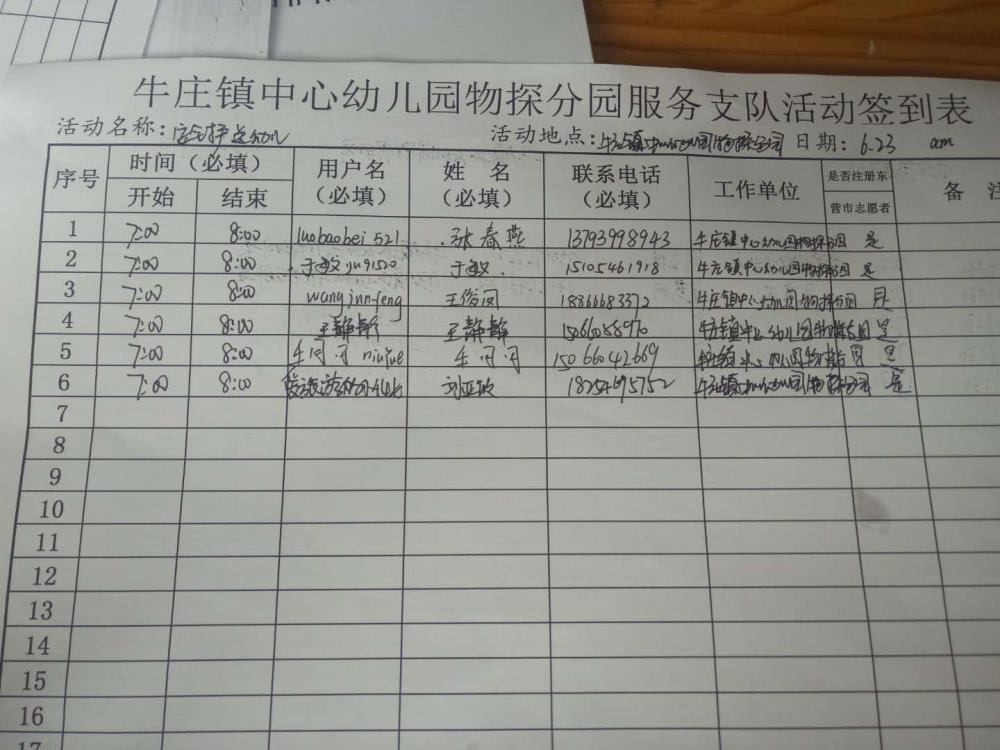 牛庄镇中心幼儿园物探分园服务支队活动签到表
活动名称: 活动地点:牛庄镇中心幼儿园物探分园 日期: 6.23 am
序号 时间(必填) 用户名(必填) 姓名(必填) 联系电话(必填) 工作单位 是否注册东营市志愿者 备注
开始 结束
1 7:00 8:00 luobaobei521 张春燕 13793998943 牛庄镇中心幼儿园物探分园 是
2 7:00 8:00 于敏yu91520 于敏 15105461918 牛庄镇中心幼儿园物探分园 是
3 7:00 8:00 王俊凤 18866683372 牛庄镇中心幼儿园物探分园 是
4 7:00 8:00 王静静 王静静 15066088970 牛庄镇中心幼儿园物探分园 是
5 7:00 8:00 15066042669 牛庄镇中心幼儿园物探分园 是
6 7:00 8:00 刘亚欣 18254695752 牛庄镇中心幼儿园物探分园 是
7
8
9
10
11
12
13
14
15
16
17